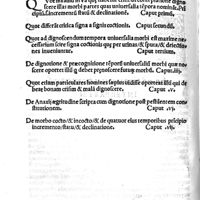 scere illas morbi partes quas universalia tēpora nominant. Pri
cipiū. incremētū statū & declinationē. Caput primū.
Quot differētiæ critica signa a signis coctionis. Caput secundū.
Quot ad dignoscendum tempora universalia morbi est maxime ne
cessarium scire signa coctionis quę per urinas & sputa/& deiectiones
inveniuntur. Caput tertium.
De dignotione & præcognitione tēporū universaliū morbi quæ
oporteat illū q̄ debet prognosticare futura. Caput .iiij.
Quot etiam particulares homines saptus vidisse oportet illū qui de
bet bonam crisim & malā dignoscere. Caput .v.
De Anaxij ægritudine scripta cum dignotione post pestilentem con
stitutionem. Caput .vi.
De morbo cocto/& incocto/& de quatuor eius temporibus pricipio
incremento/statu/& declinatione. Caput .vij.